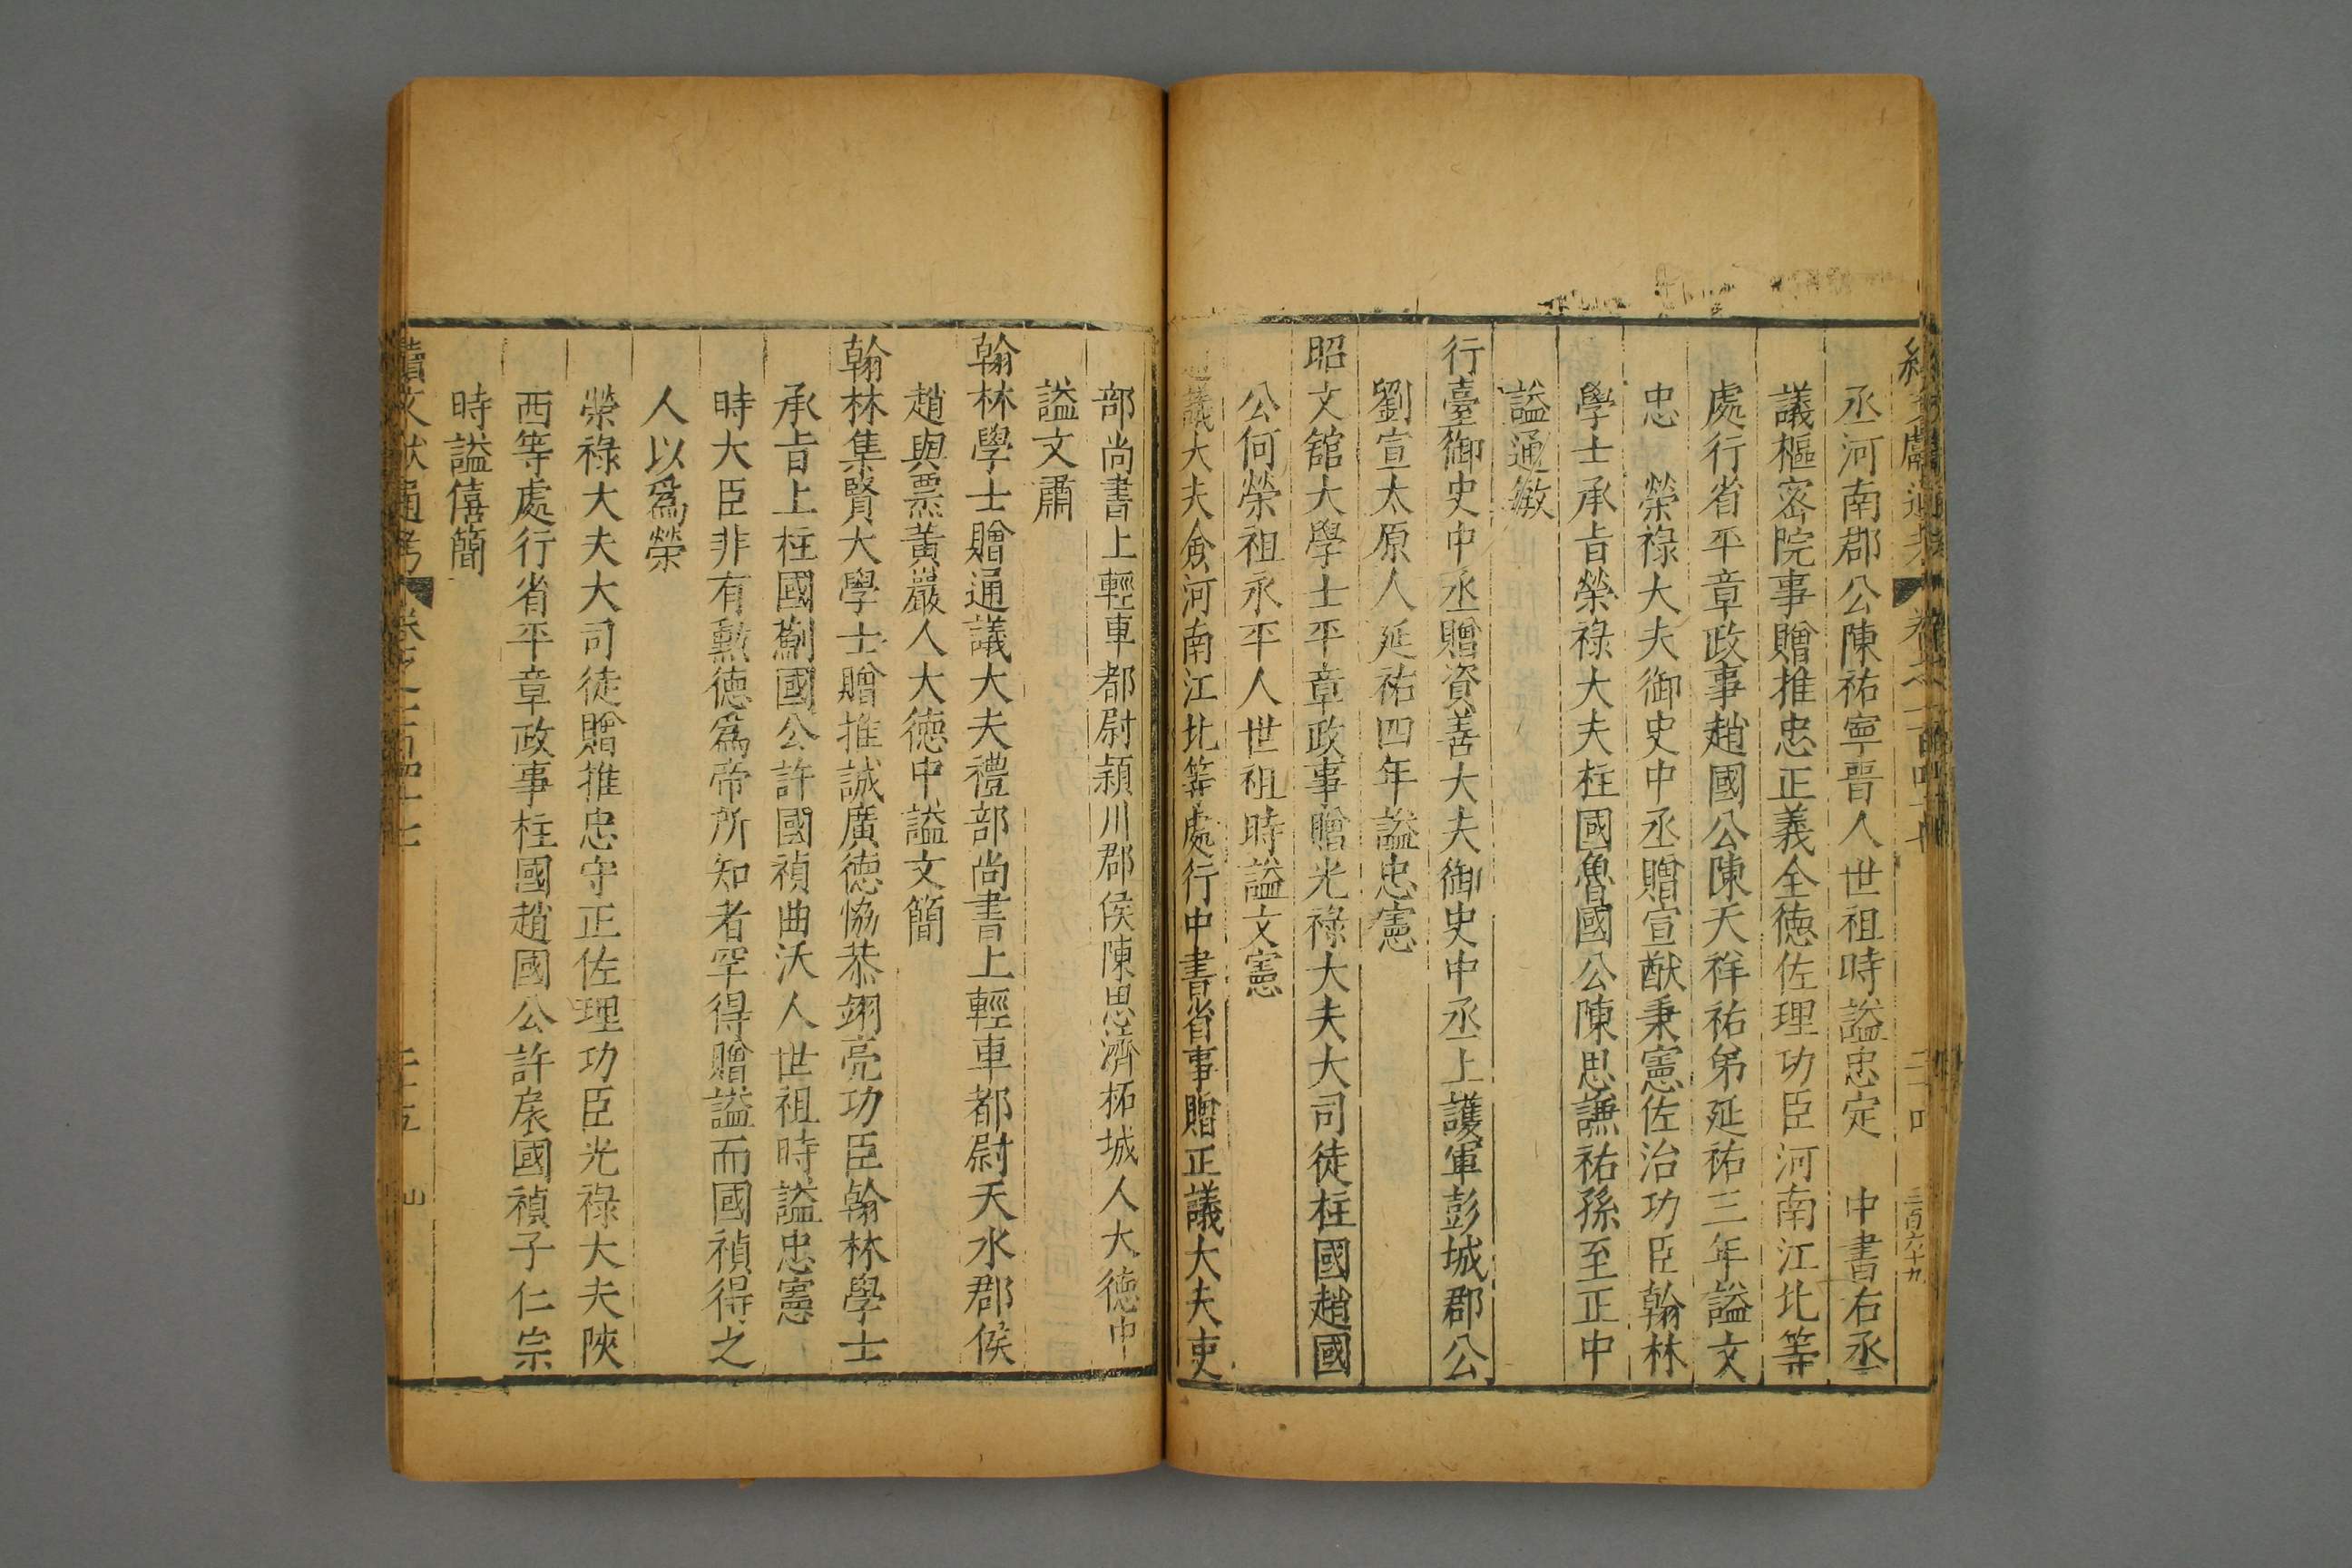 續文獻通考 卷之一百四十七 二十四 三百六十九
丞河南郡公陳祐寧晋人世祖時謚忠定 中書右丞
議樞宻院事贈推忠正義全德佐理功臣河南江北等
處行省平章政事趙國公陳天祥祐弟延祐三年謚文
忠 榮祿大夫御史中丞贈宣猷秉憲佐治功臣翰林
學士承旨榮祿大夫柱國魯國公陳思謙祐孫至正中
謚通敏
行臺御史中丞贈資善大夫御史中丞上護軍彭城郡公
劉宣太原人延祐四年謚忠憲
昭文舘大學士平章政事贈光祿大夫大司徒柱國趙國
公何榮祖永平人世祖時謚文憲
議大夫僉河南江北等處行中書省事贈正議大夫吏
部尚書上輕車都尉頴川郡侯陳思濟柘城人大德中
謚文肅
翰林學士贈通議大夫禮部尚書上輕車都尉天水郡侯
趙與票黃巖人大德中謚文簡
翰林集賢大學士贈推誠廣德恊恭翊亮功臣翰林學士
承旨上柱國薊國公許國禎曲沃人世祖時謚忠憲
時大臣非有勲德爲帝所知者罕得贈謚而國禎得之
人以爲榮
榮祿大夫大司徒贈推忠守正佐理功臣光祿大夫陝
西等處行省平章政事柱國趙國公許扆國禎子仁宗
時謚僖簡
續文獻通考 卷之一百四十七 二十五 山